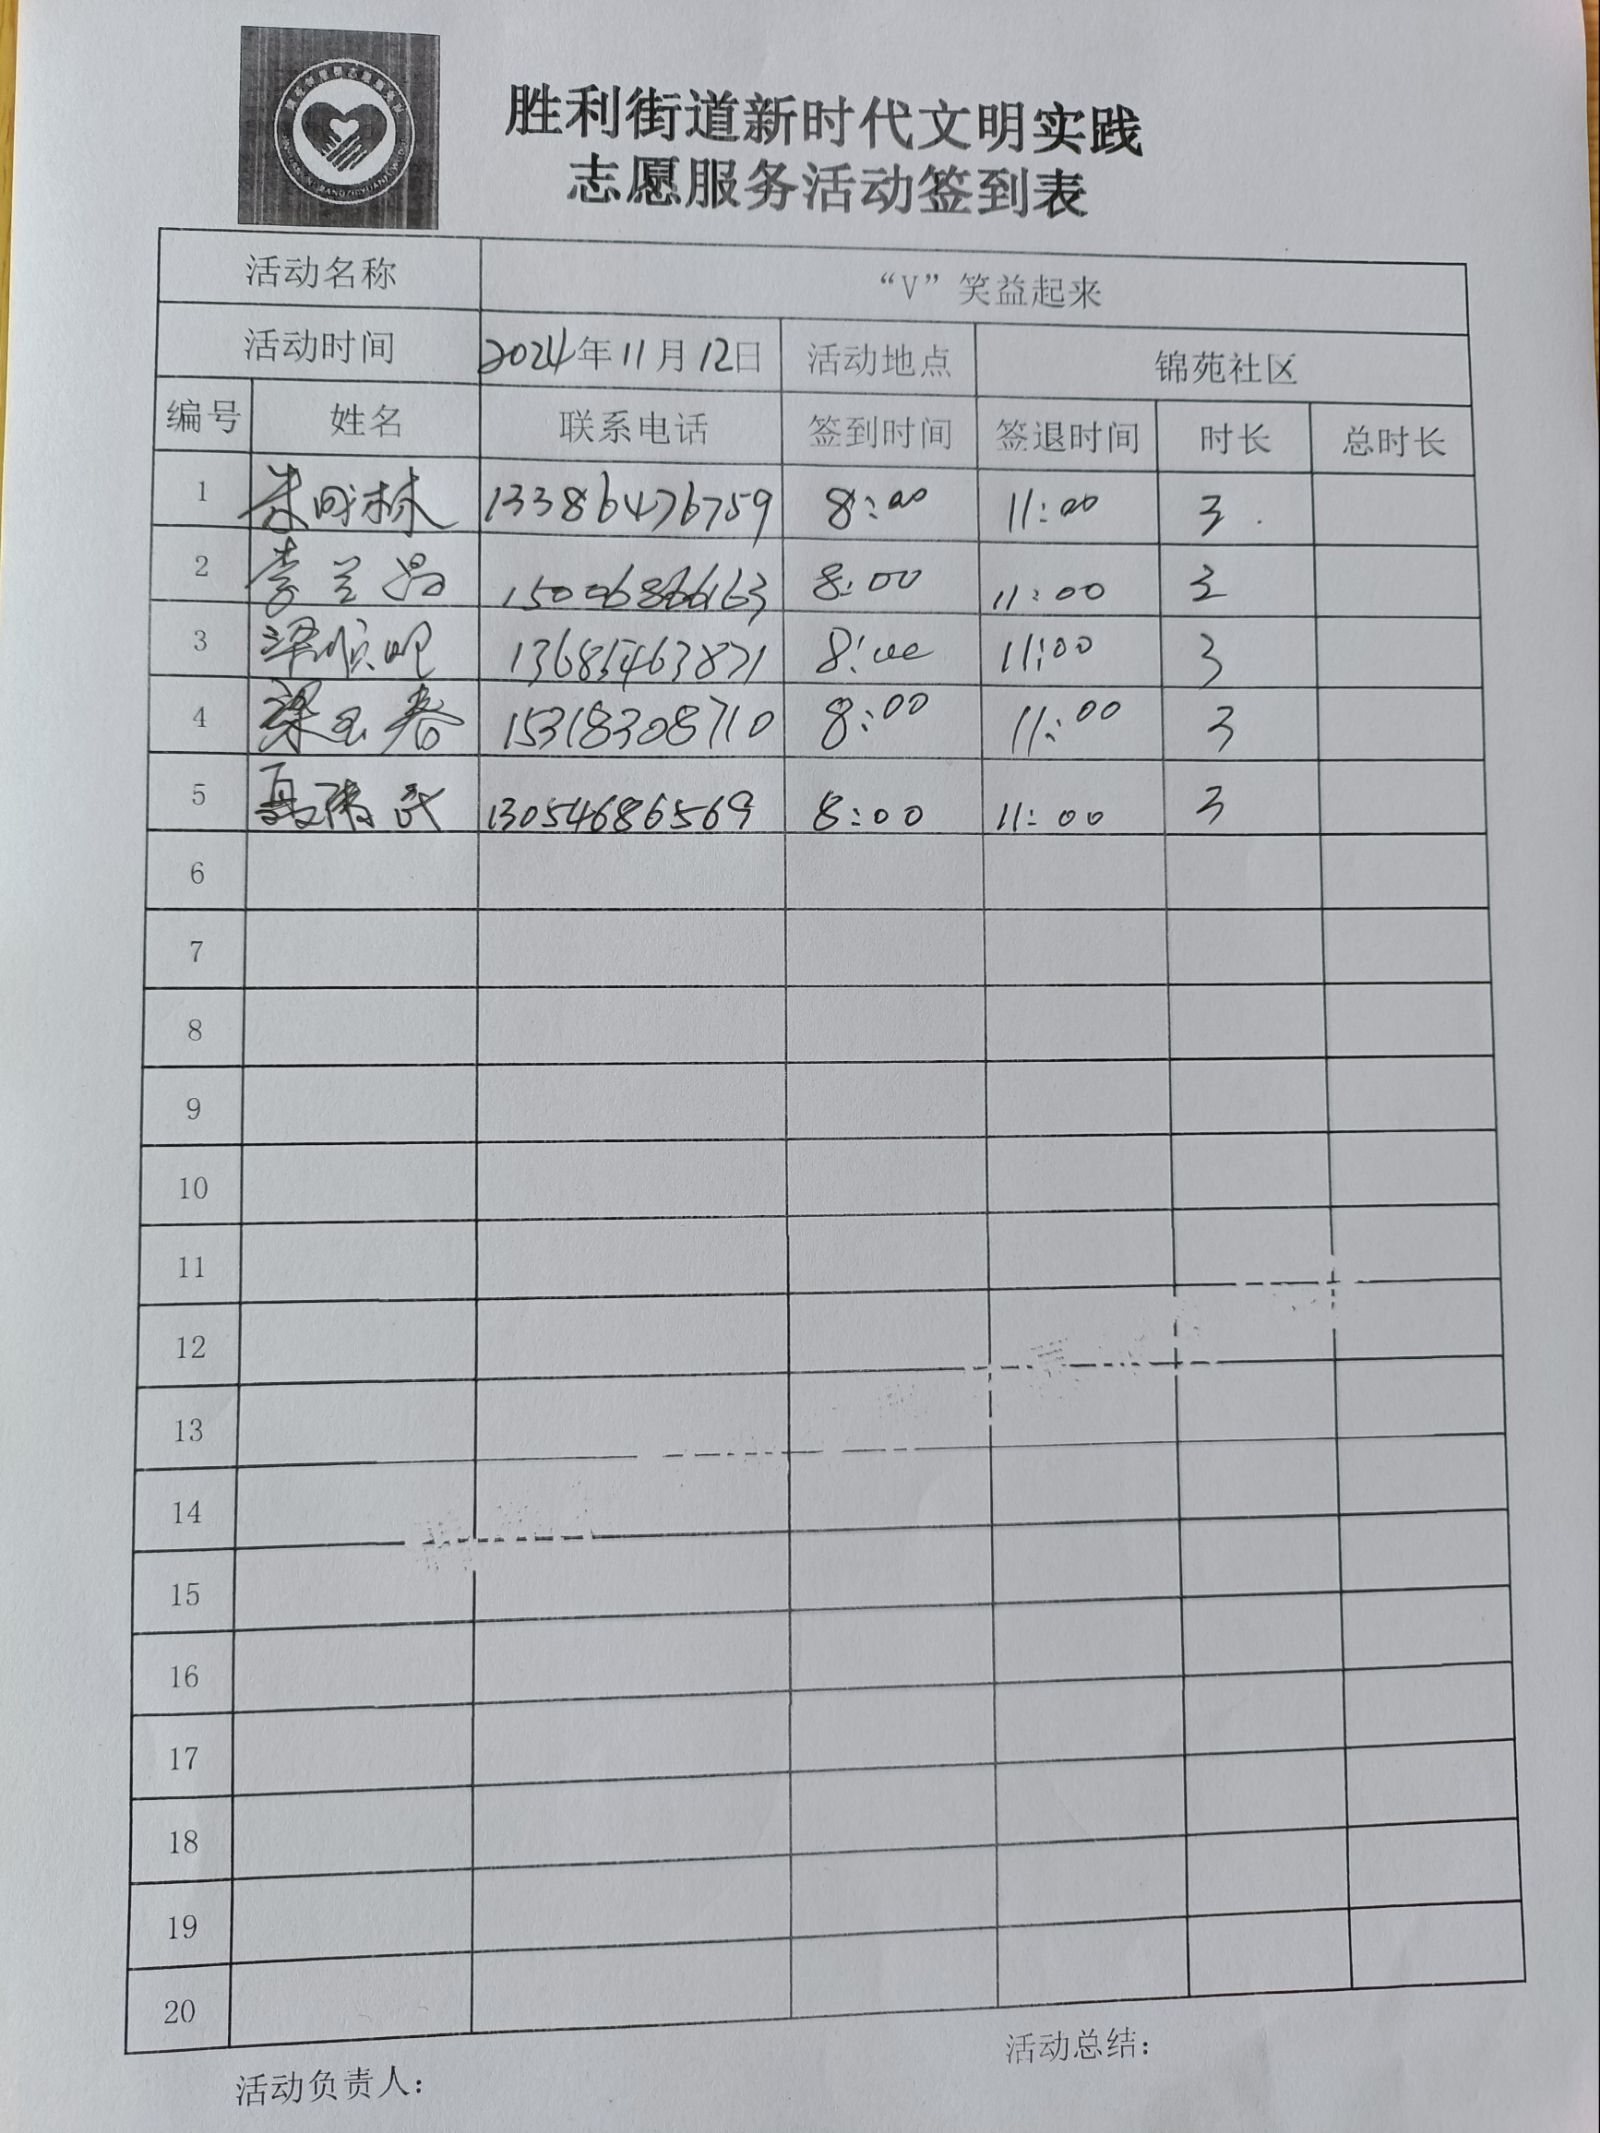 胜利街道新时代文明实践
志愿服务活动签到表
活动名称 “V”笑益起来
活动时间 2024年11月12日 活动地点 锦苑社区
编号 姓名 联系电话 签到时间 签退时间 时长 总时长
1 13386476759 8:00 11:00 3
2 李兰 8:00 11:00 3
3 13685463871 8:00 11:00 3
4 梁玉春 15318308710 8:00 11:00 3
5 13054686569 8:00 11:00 3
6
7
8
9
10
11
12
13
14
15
16
17
18
19
20
活动负责人： 活动总结：